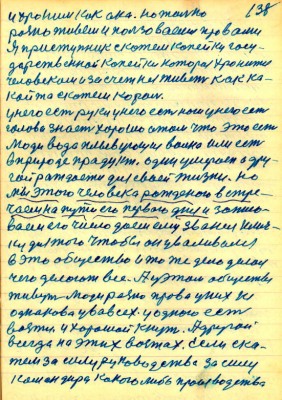 138
и храним как она. но только
разно живем и пользоваем правами
Я приступник скотеи копейки госу-
дарственной копейки котора хранити
человеком и за счет неи живет как ка-
кой та скотеи король.
у него ест руки у него ест ноги у него ест
голова знает хорошо о том что это ест
люди вода живевующи воина или ест
в природе продукт. один умирает а дру-
гой рождается для своей жизни. но
мы этого человека рожденого встре-
чаем на пути его первого дня и записо-
ваем его число даем ему звания
для того чтобы он уваливался
в это общество и то же дело делал
чего делают все. А у этом обществе
живут люди разно права у них не
однакова у всех. у одного ест
возжи и хороший кнут. А другой
всегда на этих возжах. Если ска-
жем за силу руководства за силу
командира какого любо производства